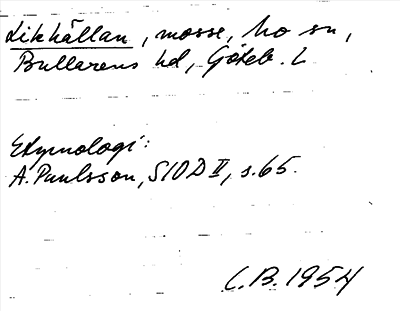 Likkällan, mosse, Mo sn,
Bullarens hd, Göteb. L
Etymologi:
A. Paulsson, SIOD II, s. 65.
C.B. 1954